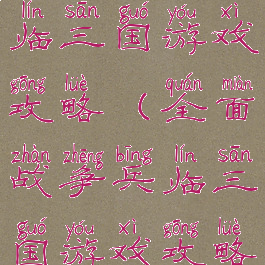 lín sān guó yóu xì
临三国游戏
gōng lüè quán miàn
攻略（全面
zhàn zhēng bīng lín sān
战争兵临三
guó yóu xì gōng lüè
国游戏攻略